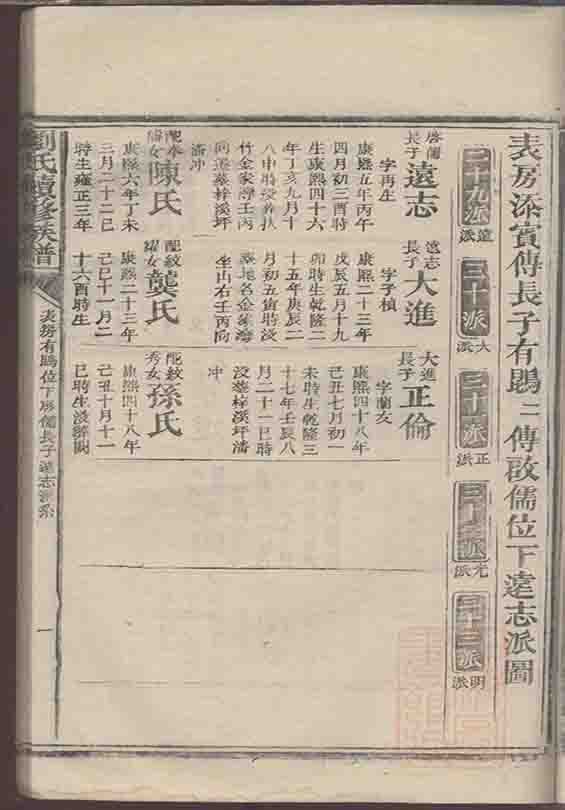 表房添賓傳長子有鵾二傳啟儒位下遠志派圖
二十九派 遠派
三十派 大派
三十一派 正派
三十二派 光派
三十三派 明派
啓儒長子 遠志
字再生
康熙五年丙午
四月初三酉時
生康熙四十六
年丁亥九月十
八申時歿葬扶
竹金家灣壬丙
向遷墓梓溪坪
潘冲
配本女 陳氏
康熙六年丁未
三月二十二巳
時生雍正三年
遠志長子 大進
字子楨
康熙二十三年
戊辰五月十九
卯時生乾隆二
十五年庚辰二
月初五寅時歿
葬地名金家灣
坐山右壬丙向
配紋女 龔氏
康熙二十三年
己巳十一月二
十六酉時生
大進長子 正倫
字蘭友
康熙四十八年
己丑七月初一
未時生乾隆三
十七年壬辰八
月二十一巳時
歿葬梓溪坪潘
冲
配紋秀女 孫氏
康熙四十八年
己丑十月十一
巳時生歿葬闕
劉氏續修族譜
表房有鵾位下啓儒長子遠志派系
一